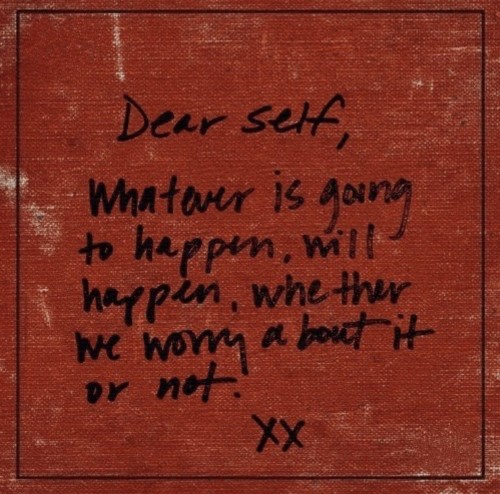 Dear self,
Whatever is going
to happen, will
happen, whether
we worry about it
or not.
XX